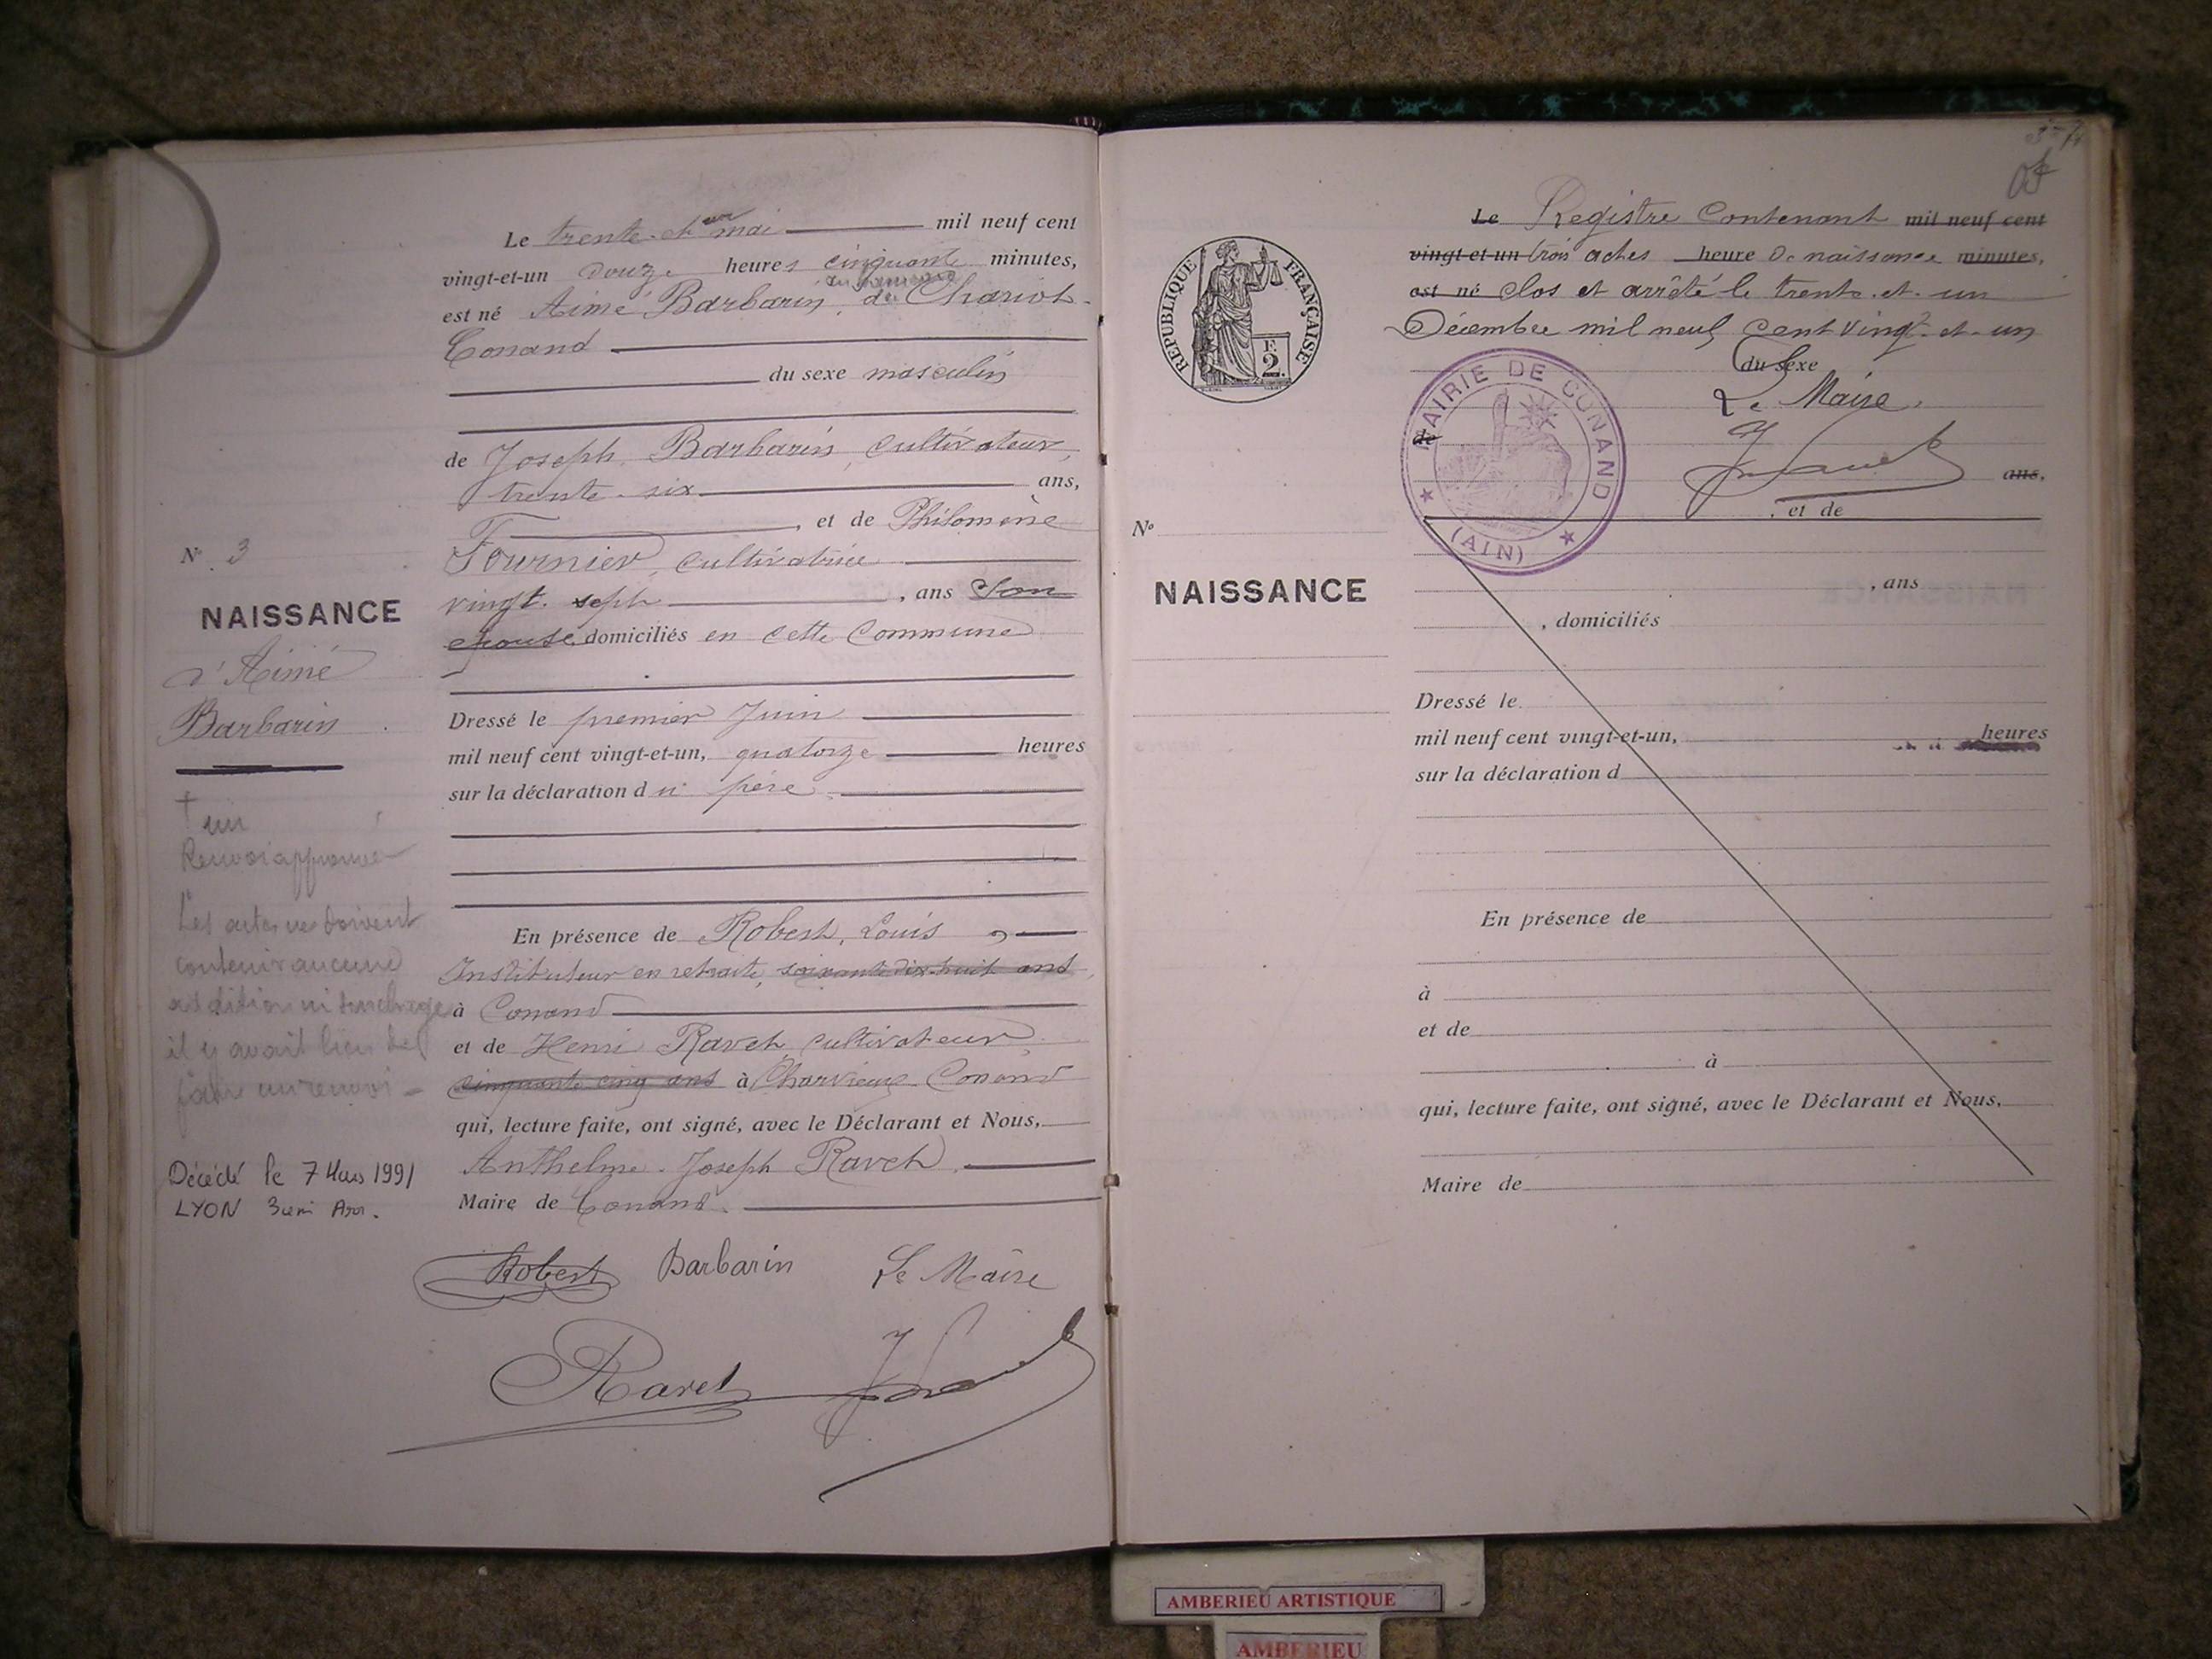 Le trente-et un mai mil neuf cent
vingt-et-un douze heures cinquante minutes,
est né Aimé Barbarin, de Chariot-
Conand
du sexe masculin
de Joseph Barbarin, cultivateur,
trente-six ans,
, et de Philomène
Fournier, cultivatrice
vingt-sept , ans Son
épouse, domiciliés en cette Commune
Dressé le premier Juin
mil neuf cent vingt-et-un, quatorze heures
sur la déclaration du père
En présence de Robert, Louis
Instituteur en retraite, soixante dix-huit ans,
à Conand
et de Henri Ravet cultivateur
cinquante cinq ans à Charvieux Conand
qui, lecture faite, ont signé, avec le Déclarant et Nous,
Anthelme-Joseph Ravet
Maire de Conand.
Robert Barbarin Le Maire
Ravet
N° 3
NAISSANCE
d'Aimé
Barbarin
† un
Renvoi approuvé
Les actes ne doivent
contenir aucune
addition ni surcharge
il y avait lieu de
faire un renvoi -
Décédé le 7 Mars 1991
LYON 3em Arr.
REPUBLIQUE FRANÇAISE
F.
2.
N°
NAISSANCE
Le Registre Contenant mil neuf cent
vingt-et-un trois actes heure de naissance minutes,
est né clos et arrêté le trente-et-un
Décembre mil neuf Cent vingt-et-un
du sexe
Le Maire,
MAIRIE DE CONAND
(AIN)
de
ans,
, et de
, ans
, domiciliés
Dressé le
mil neuf cent vingt-et-un, heures
sur la déclaration d
En présence de
à
et de
à
qui, lecture faite, ont signé, avec le Déclarant et Nous,
Maire de
AMBERIEU ARTISTIQUE
AMBERIEU